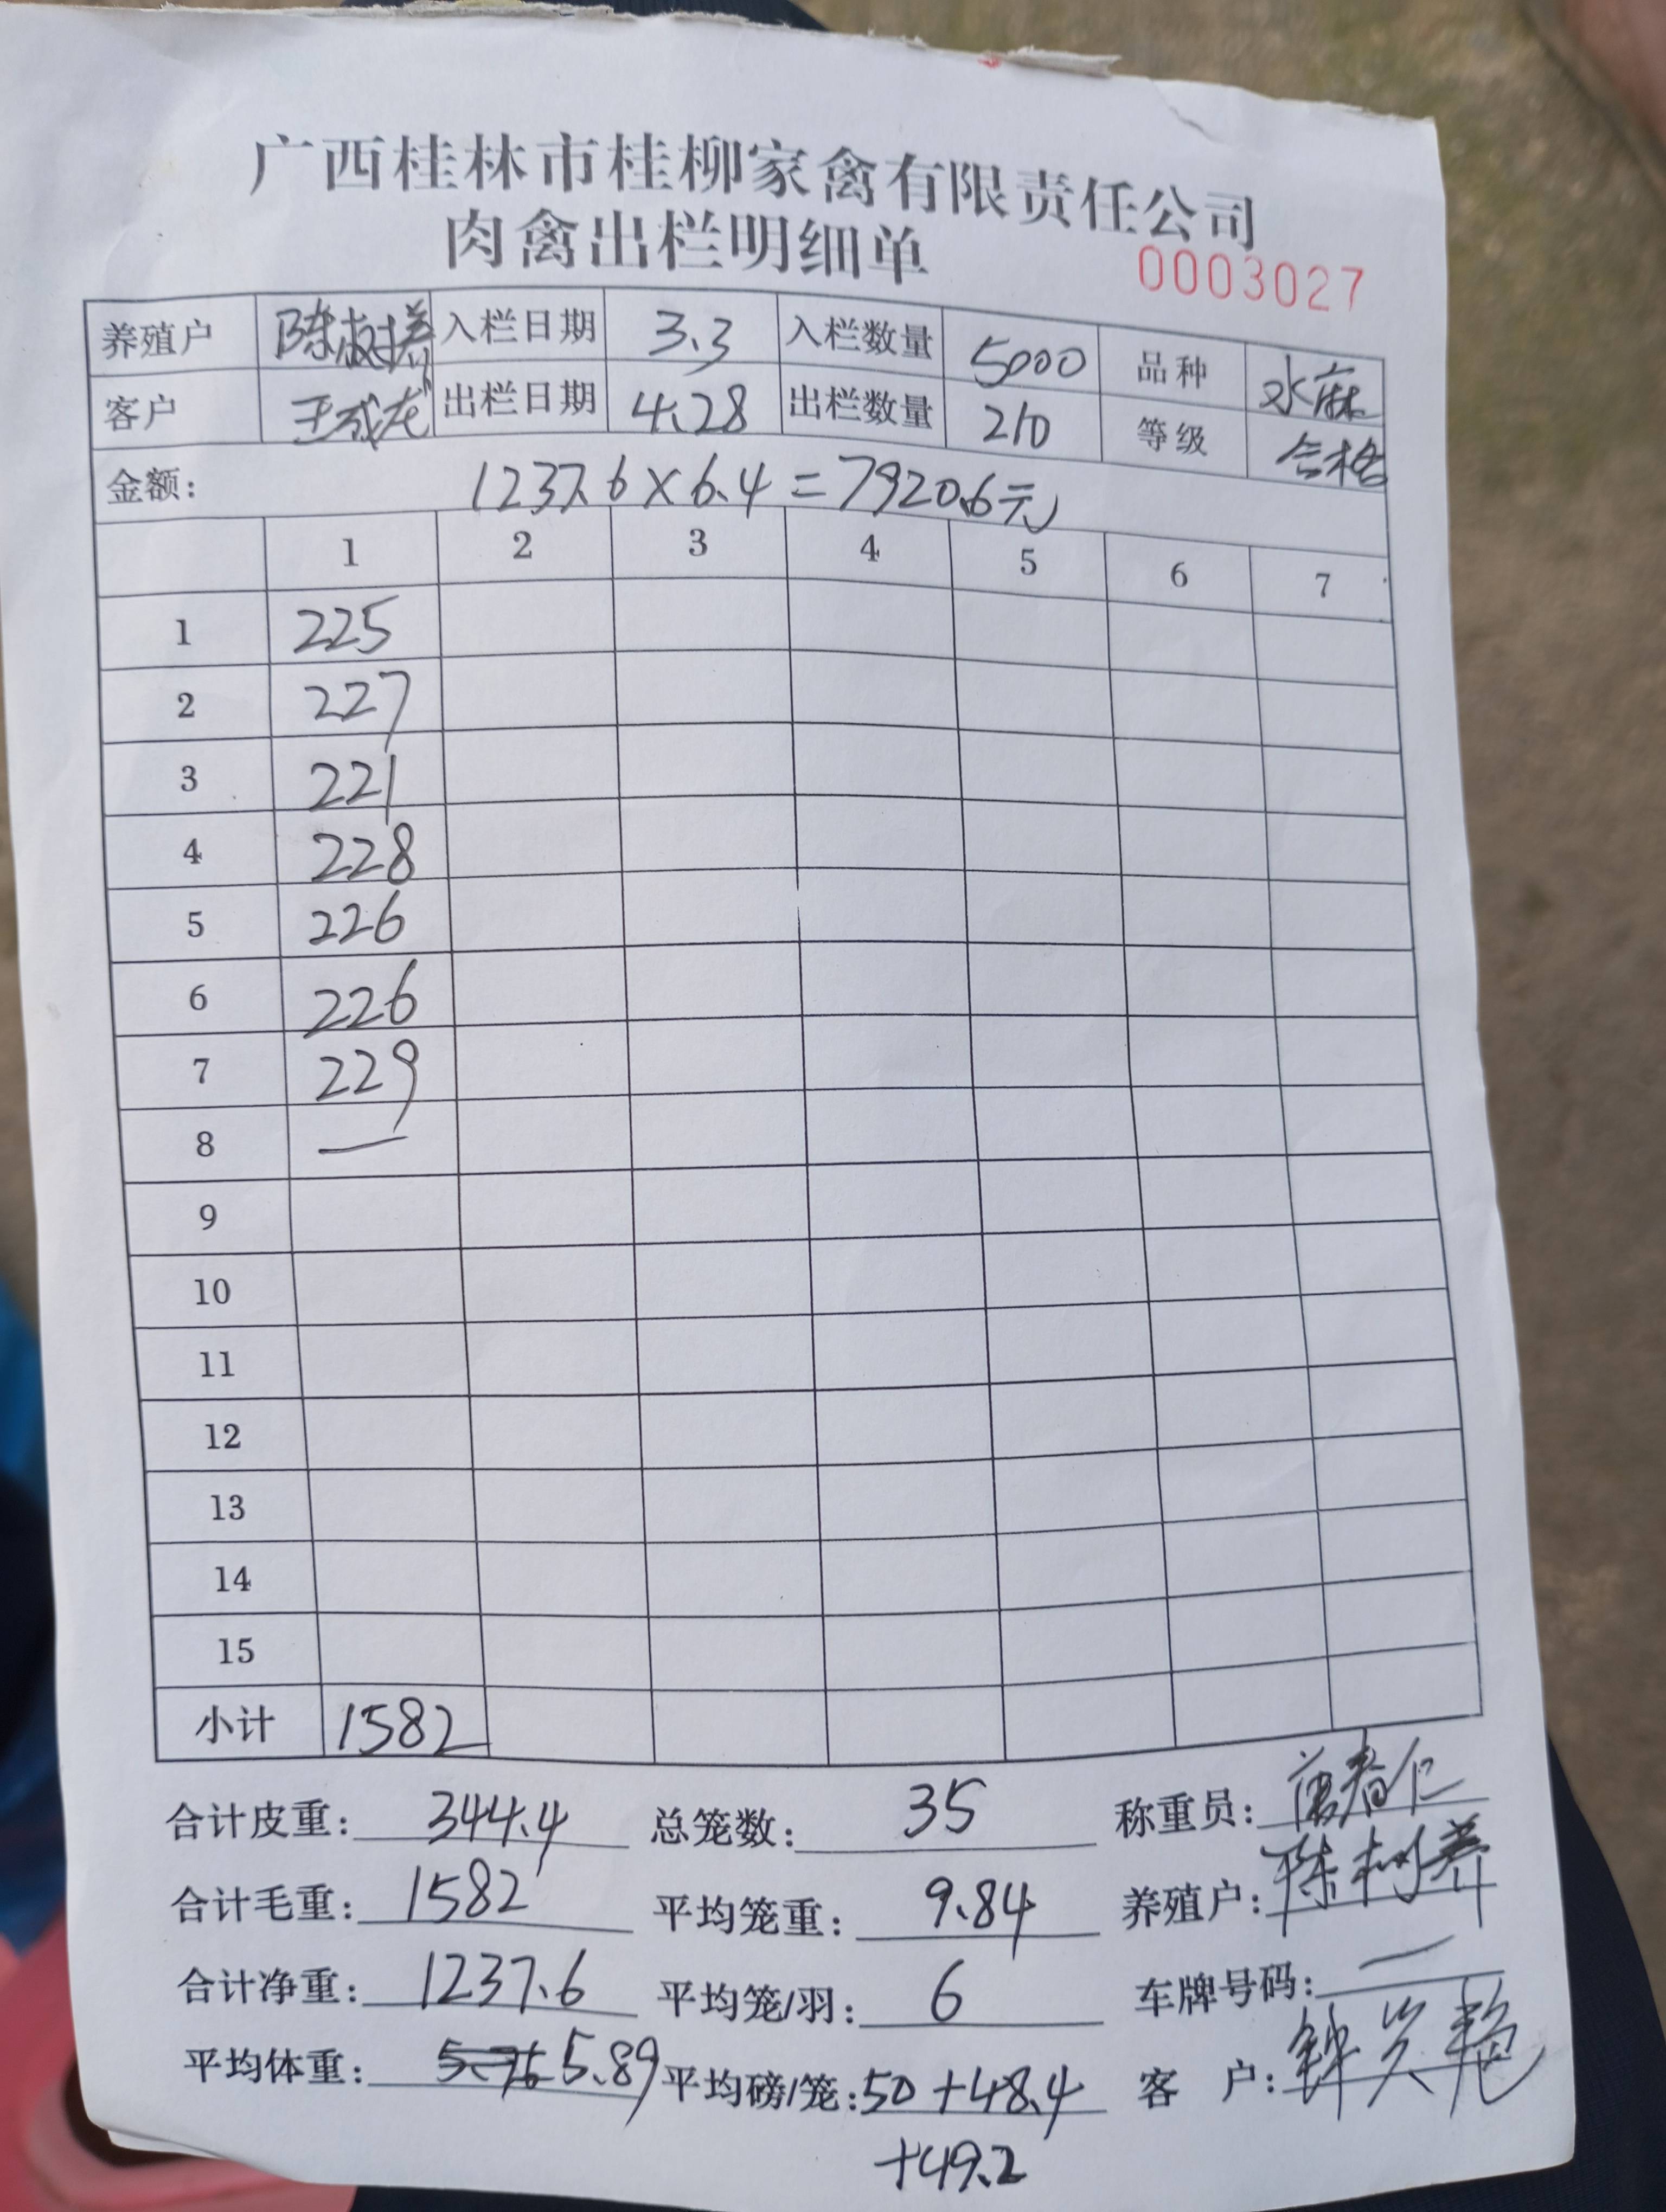 广西桂林市桂柳家禽有限责任公司
肉禽出栏明细单
0003027
养殖户 陈树养 入栏日期 3.3 入栏数量 5000 品种 水麻
客户 王成龙 出栏日期 4.28 出栏数量 210 等级 合格
金额: 1237.6×6.4=7920.6元
1 2 3 4 5 6 7
1 225
2 227
3 221
4 228
5 226
6 226
7 229
8 —
9
10
11
12
13
14
15
小计 1582
合计皮重: 344.4 总笼数: 35 称重员:
合计毛重: 1582 平均笼重: 9.84 养殖户: 陈树养
合计净重: 1237.6 平均笼/羽: 6 车牌号码: —
平均体重: 5.89 平均磅/笼: 50+48.4 客 户:
+49.2